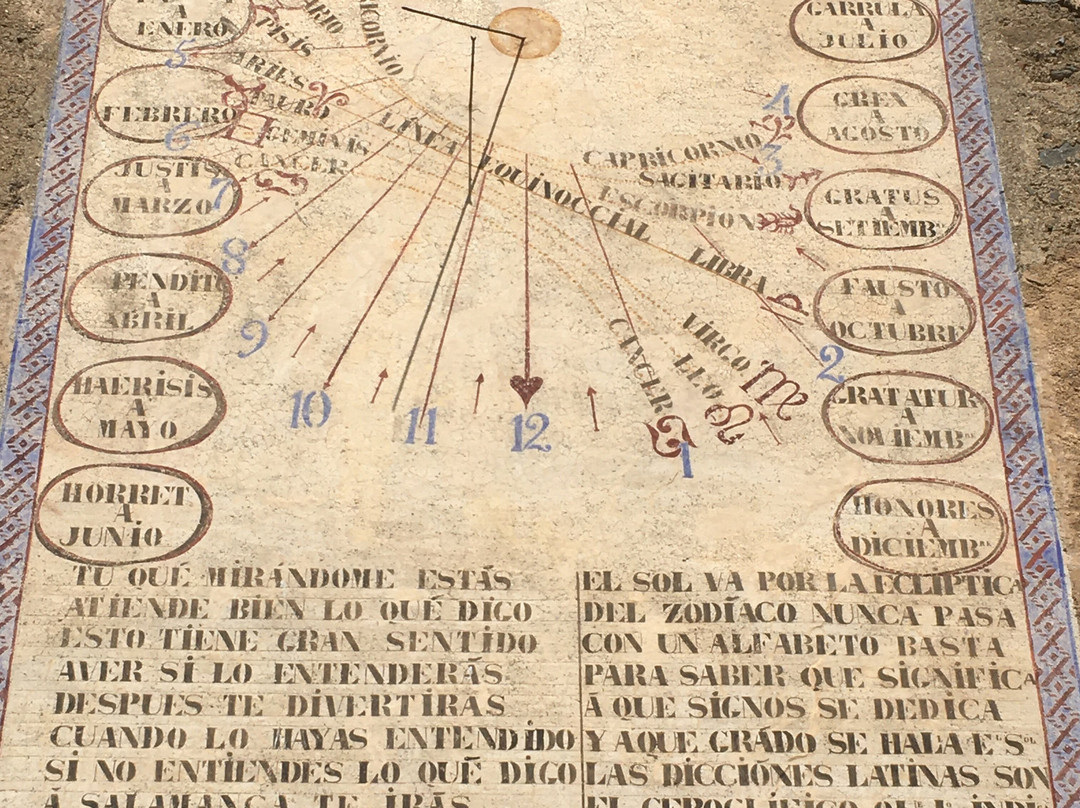 A
ENERO
FEBRERO
JUSTIS
A
MARZO
PENDITU
A
ABRIL
HAERISIS
A
MAYO
HORRET
A
JUNIO
GARRULA
A
JULIO
GREX
A
AGOSTO
GRATUS
A
SETIEMBRE
FAUSTO
A
OCTUBRE
GRATATUR
A
NOVIEMBRE
HONORES
A
DICIEMBRE
PISIS
ARIES
TAURO
GEMINIS
CANCER
LÍNEA EQUINOCCIAL
CAPRICORNIO
SAGITARIO
ESCORPION
LIBRA
VIRGO
LEO
CANCER
5
6
7
8
9
10
11
12
1
2
3
4
TU QUÉ MIRÁNDOME ESTÁS
ATIENDE BIEN LO QUÉ DIGO
ESTO TIENE GRAN SENTIDO
AVER SI LO ENTENDERÁS
DESPUES TE DIVERTIRAS
CUANDO LO HAYAS ENTENDIDO
SI NO ENTIENDES LO QUÉ DIGO
Á SALAMANCA TE IRÁS
EL SOL VA POR LA ECLIPTICA
DEL ZODÍACO NUNCA PASA
CON UN ALFABETO BASTA
PARA SABER QUE SIGNIFICA
Á QUE SIGNOS SE DEDICA
Y A QUE GRÁDO SE HALA E^L S^OL
LAS DICCIÓNES LATINAS SON
EL GEROGLÍFICO